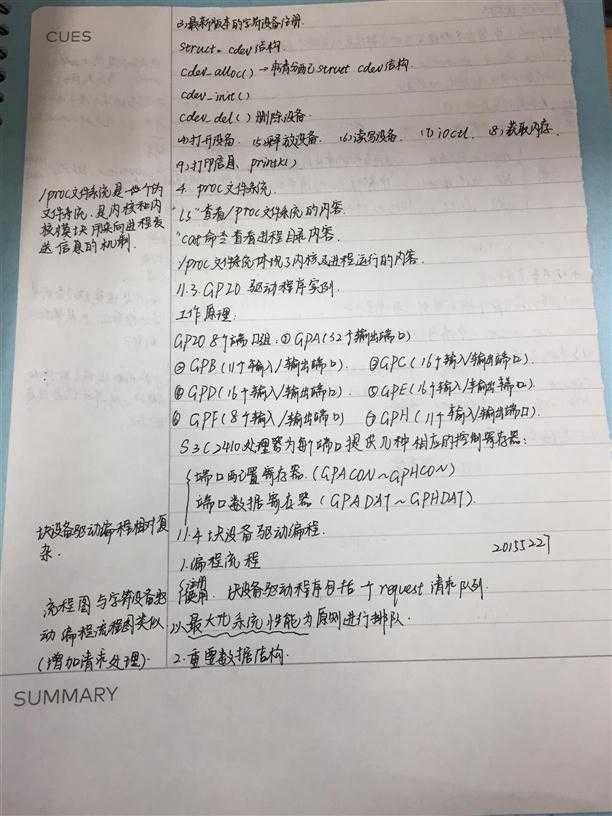 CUES
③最新版本的字符设备注册.
struct cdev结构.
cdev_alloc() → 申请分配 struct cdev结构.
cdev_init()
cdev_del() 删除设备.
(4)打开设备. (5)释放设备. (6)读写设备. (7) ioctl (8)获取内存.
(9)打印信息. printk()
4. proc文件系统.
/proc文件系统是一个伪的
文件系统.是内核和内
核模块用来向进程发
送信息的机制.
"ls"查看/proc文件系统的内容.
"cat"命令查看进程目录内容.
/proc文件系统体现了内核及进程运行的内容.
11.3. GPIO 驱动程序实例.
工作原理.
GPIO 8个端口组. ① GPA(32个输出端口)
② GPB (11个输入/输出端口). ③GPC(16个输入/输出端口).
④ GPD(16个输入/输出端口). ⑤ GPE(16个输入/输出端口).
⑥ GPF(8个输入/输出端口) ⑦ GPH (11个输入/输出端口).
S3C2410处理器为每个端口提供几种相应的控制寄存器:
端口配置寄存器. (GPACON~GPHCON)
端口数据寄存器 (GPADAT~GPHDAT).
块设备驱动编程相对复
杂.
11.4 块设备驱动编程.
1.编程流程
20155227
块设备驱动程序包括一个request请求队列.
流程图与字符设备驱
动编程流程图类似
(增加请求处理).
以最大化系统性能为原则进行排队.
2.重要数据结构.
SUMMARY